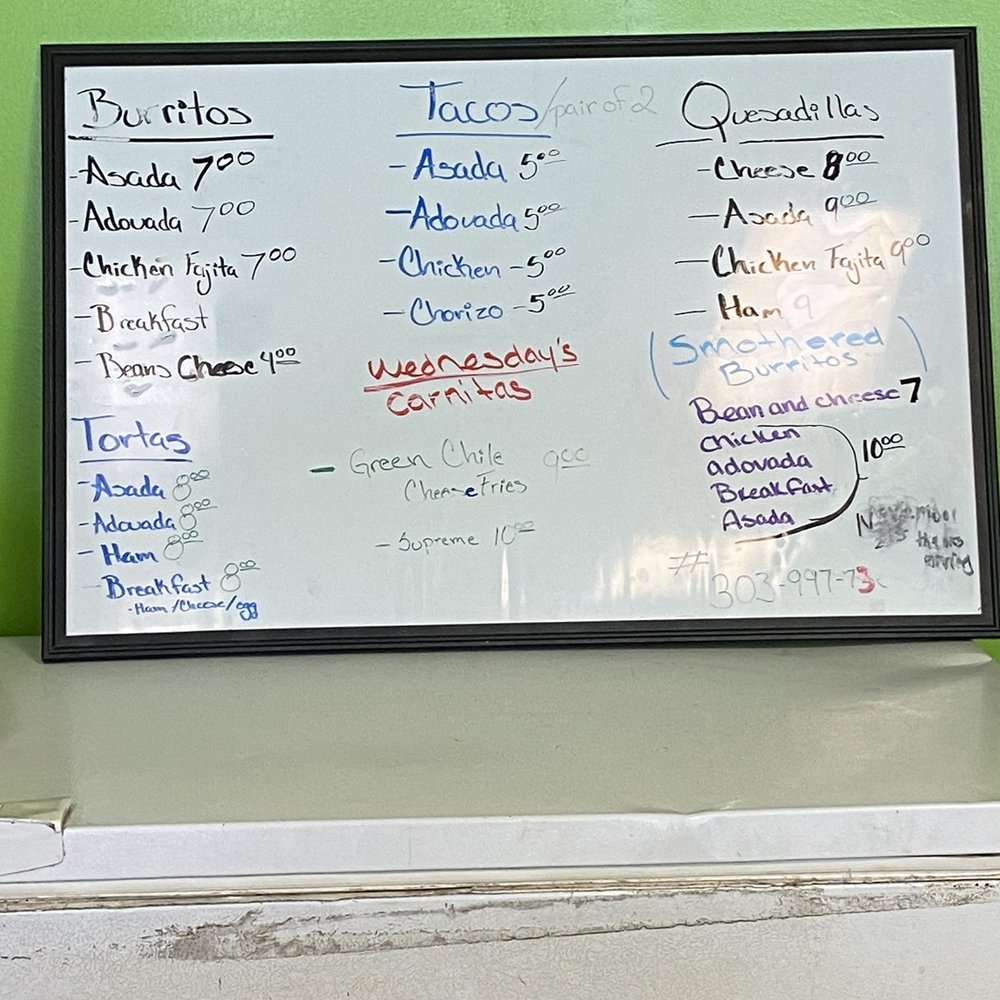 Burritos
-Asada 7⁰⁰
-Adovada 7⁰⁰
-Chicken Fajita 7⁰⁰
-Breakfast
-Beans Cheese 4⁰⁰
Tortas
-Asada 8⁰⁰
-Adovada 8⁰⁰
-Ham 8⁰⁰
-Breakfast 8⁰⁰
-Ham/Cheese/egg
Tacos/pair of 2
-Asada 5⁰⁰
-Adovada 5⁰⁰
-Chicken -5⁰⁰
-Chorizo -5⁰⁰
Wednesday's
Carnitas
- Green Chile 9⁰⁰
Cheese Fries
- Supreme 10⁰⁰
Quesadillas
-Cheese 8⁰⁰
-Asada 9⁰⁰
-Chicken Fajita 9⁰⁰
-Ham 9
(Smothered
Burritos)
Bean and cheese 7
chicken
adovada
Breakfast
Asada
10⁰⁰
#303-997-73